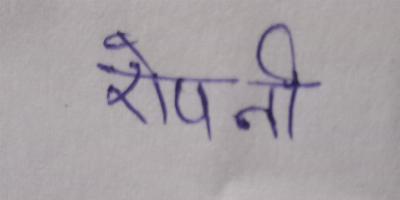 रोपनी